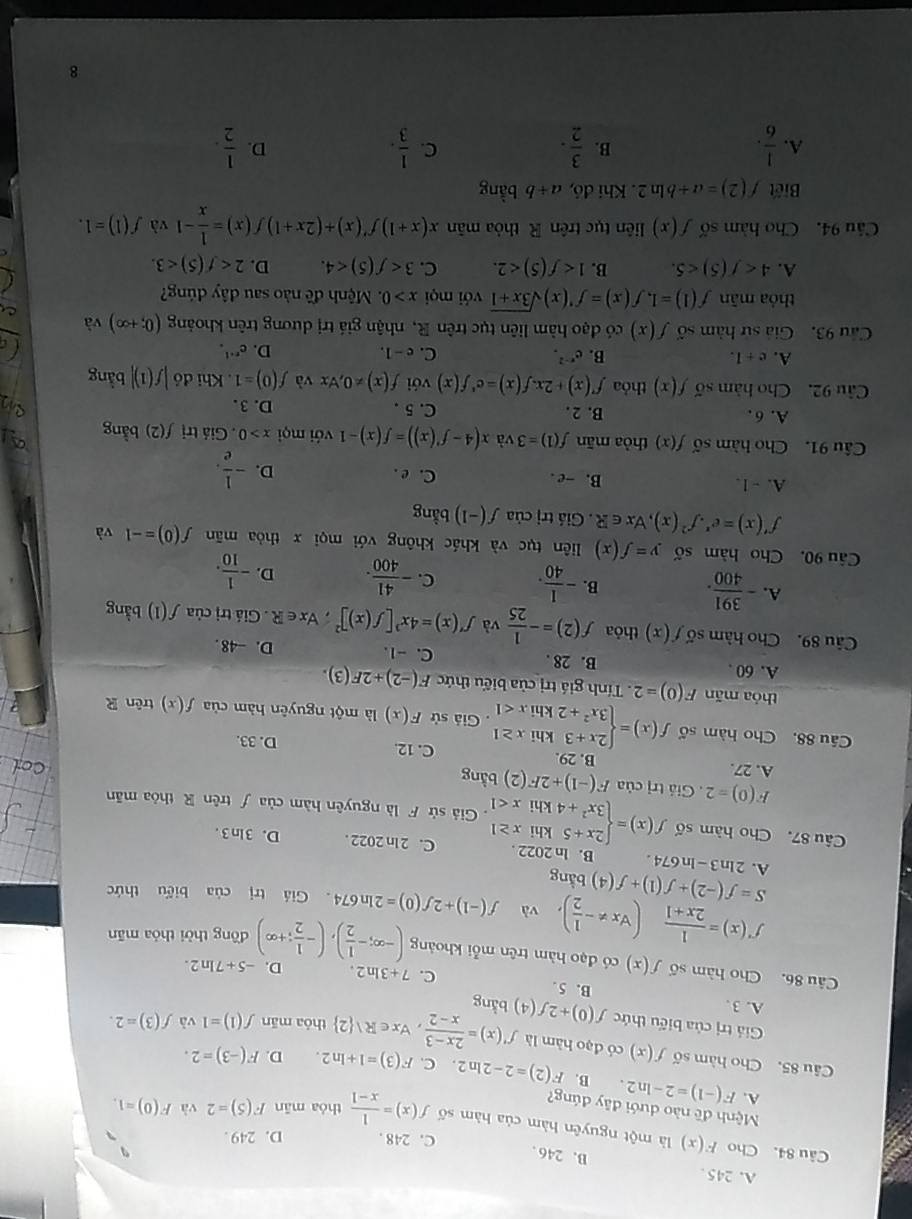 A. 245. B. 246. C. 248. D. 249.
Câu 84. Cho F(x) là một nguyên hàm của hàm số f(x) = 1/(x−1) thỏa mãn F(5) = 2 và F(0) = 1.
Mệnh đề nào dưới đây đúng?
A. F(−1) = 2 − ln 2. B. F(2) = 2 − 2 ln 2. C. F(3) = 1 + ln 2. D. F(−3) = 2.
Câu 85. Cho hàm số f(x) có đạo hàm là f'(x) = (2x−3)/(x−2), ∀x ∈ ℝ\{2} thỏa mãn f(1) = 1 và f(3) = 2.
Giá trị của biểu thức f(0) + 2f(4) bằng
A. 3. B. 5. C. 7 + 3 ln 2. D. −5 + 7 ln 2.
Câu 86. Cho hàm số f(x) có đạo hàm trên mỗi khoảng (−∞; −1/2), (−1/2; +∞) đồng thời thỏa mãn
f'(x) = 1/(2x+1) (∀x ≠ −1/2), và f(−1) + 2f(0) = 2 ln 674. Giá trị của biểu thức
S = f(−2) + f(1) + f(4) bằng
A. 2 ln 3 − ln 674. B. ln 2022. C. 2 ln 2022. D. 3 ln 3.
Câu 87. Cho hàm số f(x) = {2x + 5 khi x ≥ 1; 3x² + 4 khi x < 1. Giả sử F là nguyên hàm của f trên ℝ thỏa mãn
F(0) = 2. Giá trị của F(−1) + 2F(2) bằng
A. 27. B. 29. C. 12. D. 33.
Câu 88. Cho hàm số f(x) = {2x + 3 khi x ≥ 1; 3x² + 2 khi x < 1. Giả sử F(x) là một nguyên hàm của f(x) trên ℝ
thỏa mãn F(0) = 2. Tính giá trị của biểu thức F(−2) + 2F(3).
A. 60. B. 28. C. −1. D. −48.
Câu 89. Cho hàm số f(x) thỏa f(2) = −1/25 và f'(x) = 4x³[f(x)]², ∀x ∈ ℝ. Giá trị của f(1) bằng
A. −391/400. B. −1/40. C. −41/400. D. −1/10.
Câu 90. Cho hàm số y = f(x) liên tục và khác không với mọi x thỏa mãn f(0) = −1 và
f'(x) = eˣ.f²(x), ∀x ∈ ℝ. Giá trị của f(−1) bằng
A. −1. B. −e. C. e. D. −1/e.
Câu 91. Cho hàm số f(x) thỏa mãn f(1) = 3 và x(4 − f'(x)) = f(x) − 1 với mọi x > 0. Giá trị f(2) bằng
A. 6. B. 2. C. 5. D. 3.
Câu 92. Cho hàm số f(x) thỏa f'(x) + 2x.f(x) = eˣf(x) với f(x) ≠ 0, ∀x và f(0) = 1. Khi đó |f(1)| bằng
A. e + 1. B. eᵉ⁻². C. e − 1. D. eᵉ⁺¹.
Câu 93. Giả sử hàm số f(x) có đạo hàm liên tục trên ℝ, nhận giá trị dương trên khoảng (0; +∞) và
thỏa mãn f(1) = 1, f(x) = f'(x)√(3x+1) với mọi x > 0. Mệnh đề nào sau đây đúng?
A. 4 < f(5) < 5. B. 1 < f(5) < 2. C. 3 < f(5) < 4. D. 2 < f(5) < 3.
Câu 94. Cho hàm số f(x) liên tục trên ℝ thỏa mãn x(x+1)f'(x) + (2x+1)f(x) = 1/x − 1 và f(1) = 1.
Biết f(2) = a + b ln 2. Khi đó, a + b bằng
A. 1/6. B. 3/2. C. 1/3. D. 1/2.
8